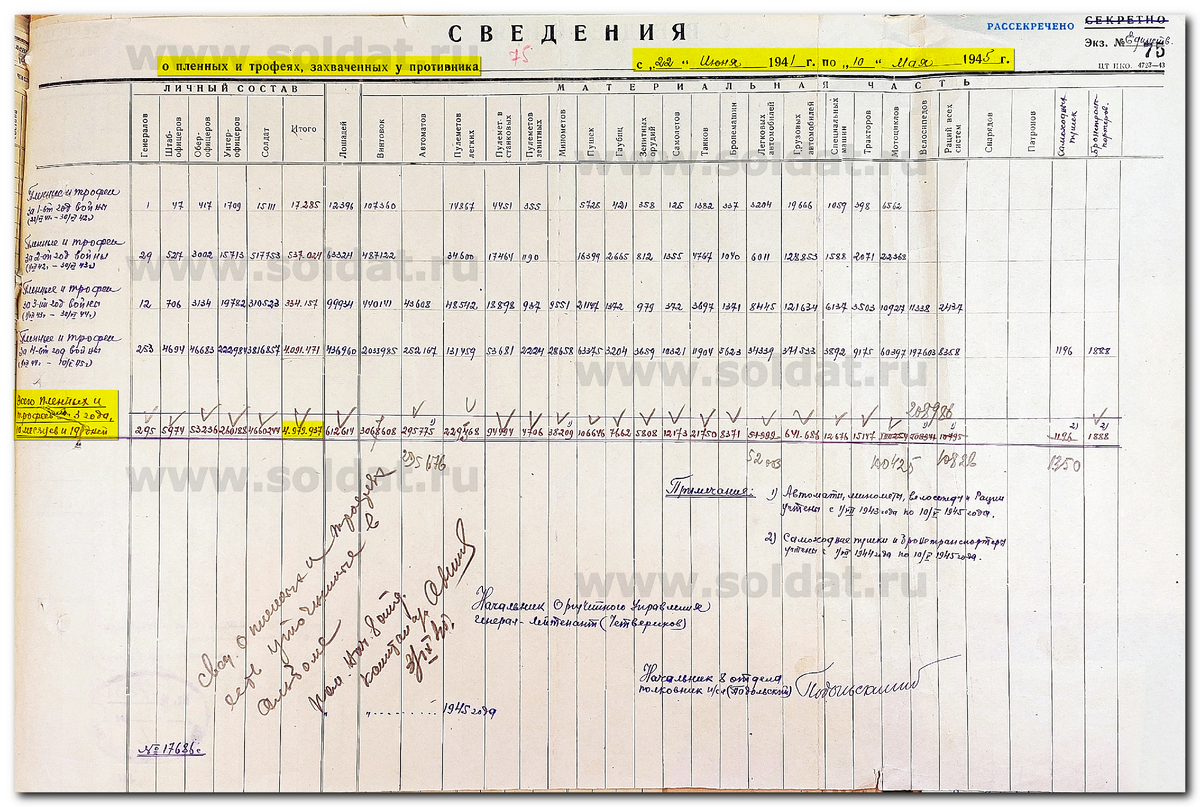 СВЕДЕНИЯ
о пленных и трофеях, захваченных у противника
75
с „22" Июня 1941 г. по „10" Мая 1945 г.
РАССЕКРЕЧЕНО
СЕКРЕТНО
Экз. № Единств.
75
ЦТ НКО. 4727—43
ЛИЧНЫЙ СОСТАВ
МАТЕРИАЛЬНАЯ ЧАСТЬ
Генералов Штаб-офицеров Обер-офицеров Унтер-офицеров Солдат Итого Лошадей Винтовок Автоматов Пулеметов легких Пулемет. в станковых Пулеметов зенитных Минометов Пушек Гаубиц Зенитных орудий Самолетов Танков Бронемашин Легковых автомобилей Грузовых автомобилей Специальных машин Тракторов Мотоциклов Велосипедов Раций всех систем Снарядов Патронов Самоходных пушек Бронетранспортеров.
Пленные и трофеи
за 1-ый год войны
(22/VI 41. – 30/VI 42г.)
1 47 417 1709 15111 17.285 12396 107360 14367 4451 355 5725 421 358 125 1382 337 3204 19666 1059 398 6562
Пленные и трофеи
за 2-ой год войны
(1/VII 42г. – 30/VI 43г.)
29 527 3002 15713 517753 537.024 63324 487122 34600 17464 1190 16399 2665 812 1355 4767 1040 6011 128853 1588 2071 22368
Пленные и трофеи
за 3-ий год войны
(1/VII 43г. – 30/VI 44г.)
12 706 3134 19782 310523 334.157 99934 440141 43608 48542 18898 937 9551 21147 1372 979 372 3697 1371 8445 121634 6137 3503 10927 11338 2437
Пленные и трофеи
за 4-ый год войны
(1/VII 44г. – 10/V 45г.)
253 4694 46683 222984 3816857 4.091.471 436960 2033985 252167 131959 53681 2224 28658 63375 3204 3659 10321 11904 5623 34339 371533 3892 9175 60397 197603 8358 1196 1888
208986
Всего пленных и
трофеев за 3 года,
10 месяцев и 19 дней
295 5974 53236 260188 4660244 4.979.937 612614 3068608 295775 229468 94494 4706 38209 106646 7662 5808 12173 21750 8371 51999 641.686 12676 15147 100254 208941 10795 1196 1888
295676 52003 100425 10826 1350
Примечания: 1) Автоматы, минометы, велосипеды и Рации
учтены с 1/VII 1943 года по 10/V 1945 года.
2) Самоходные пушки и бронетранспортеры
учтены с 1/VII 1944 года по 10/V 1945 года.
Свед. о пленных и трофеях
есть уточненные в
альбоме
пом. нач. 8 отд.
капитан
Начальник Оргучетного Управления
генерал-лейтенант (Четвериков)
Начальник 8 отдела
полковник и/с (Подольский) Подольский
„ 1945 года
№ 17686с
www.soldat.ru
www.soldat.ru
www.soldat.ru
www.soldat.ru
www.soldat.ru
www.soldat.ru
www.soldat.ru
www.soldat.ru